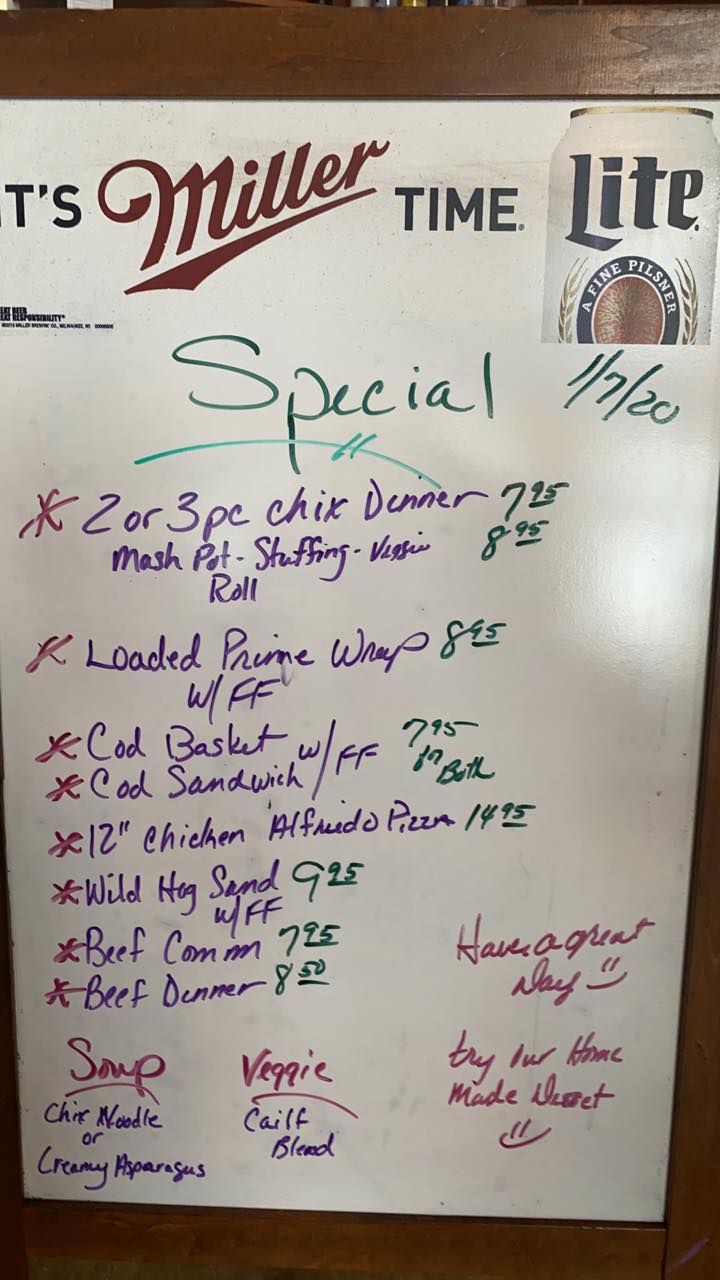 IT'S Miller TIME.
Lite
A FINE PILSNER
EAT BEER
EAT RESPONSIBILITY®
Special 1/7/20
* 2 or 3 pc chix Dinner 7.95
8.95
Mash Pot - Stuffing - Veggie
Roll
* Loaded Prime Wrap 8.95
w/ FF
* Cod Basket w/ FF 7.95
* Cod Sandwich
Both
* 12" Chicken Alfredo Pizza 14.95
* Wild Hog Sand 9.95
w/ FF
* Beef Comm 7.95
* Beef Dinner 8.50
Have a great
Day
Soup
Chix Noodle
or
Creamy Asparagus
Veggie
Cailf
Blend
try our Home
Made Desset